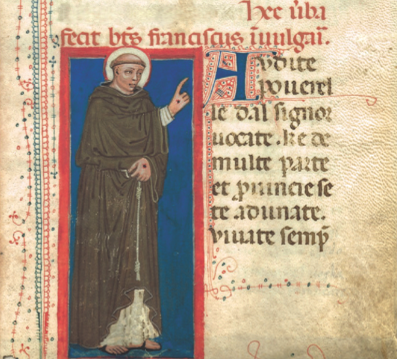 Hec v̄ba
fecit btūs franciscus ī vulgaī.
Audite
poverel
le dal signor
vocate. ke de
multe parte
et provincie se
te adunate.
Vivate semp̄